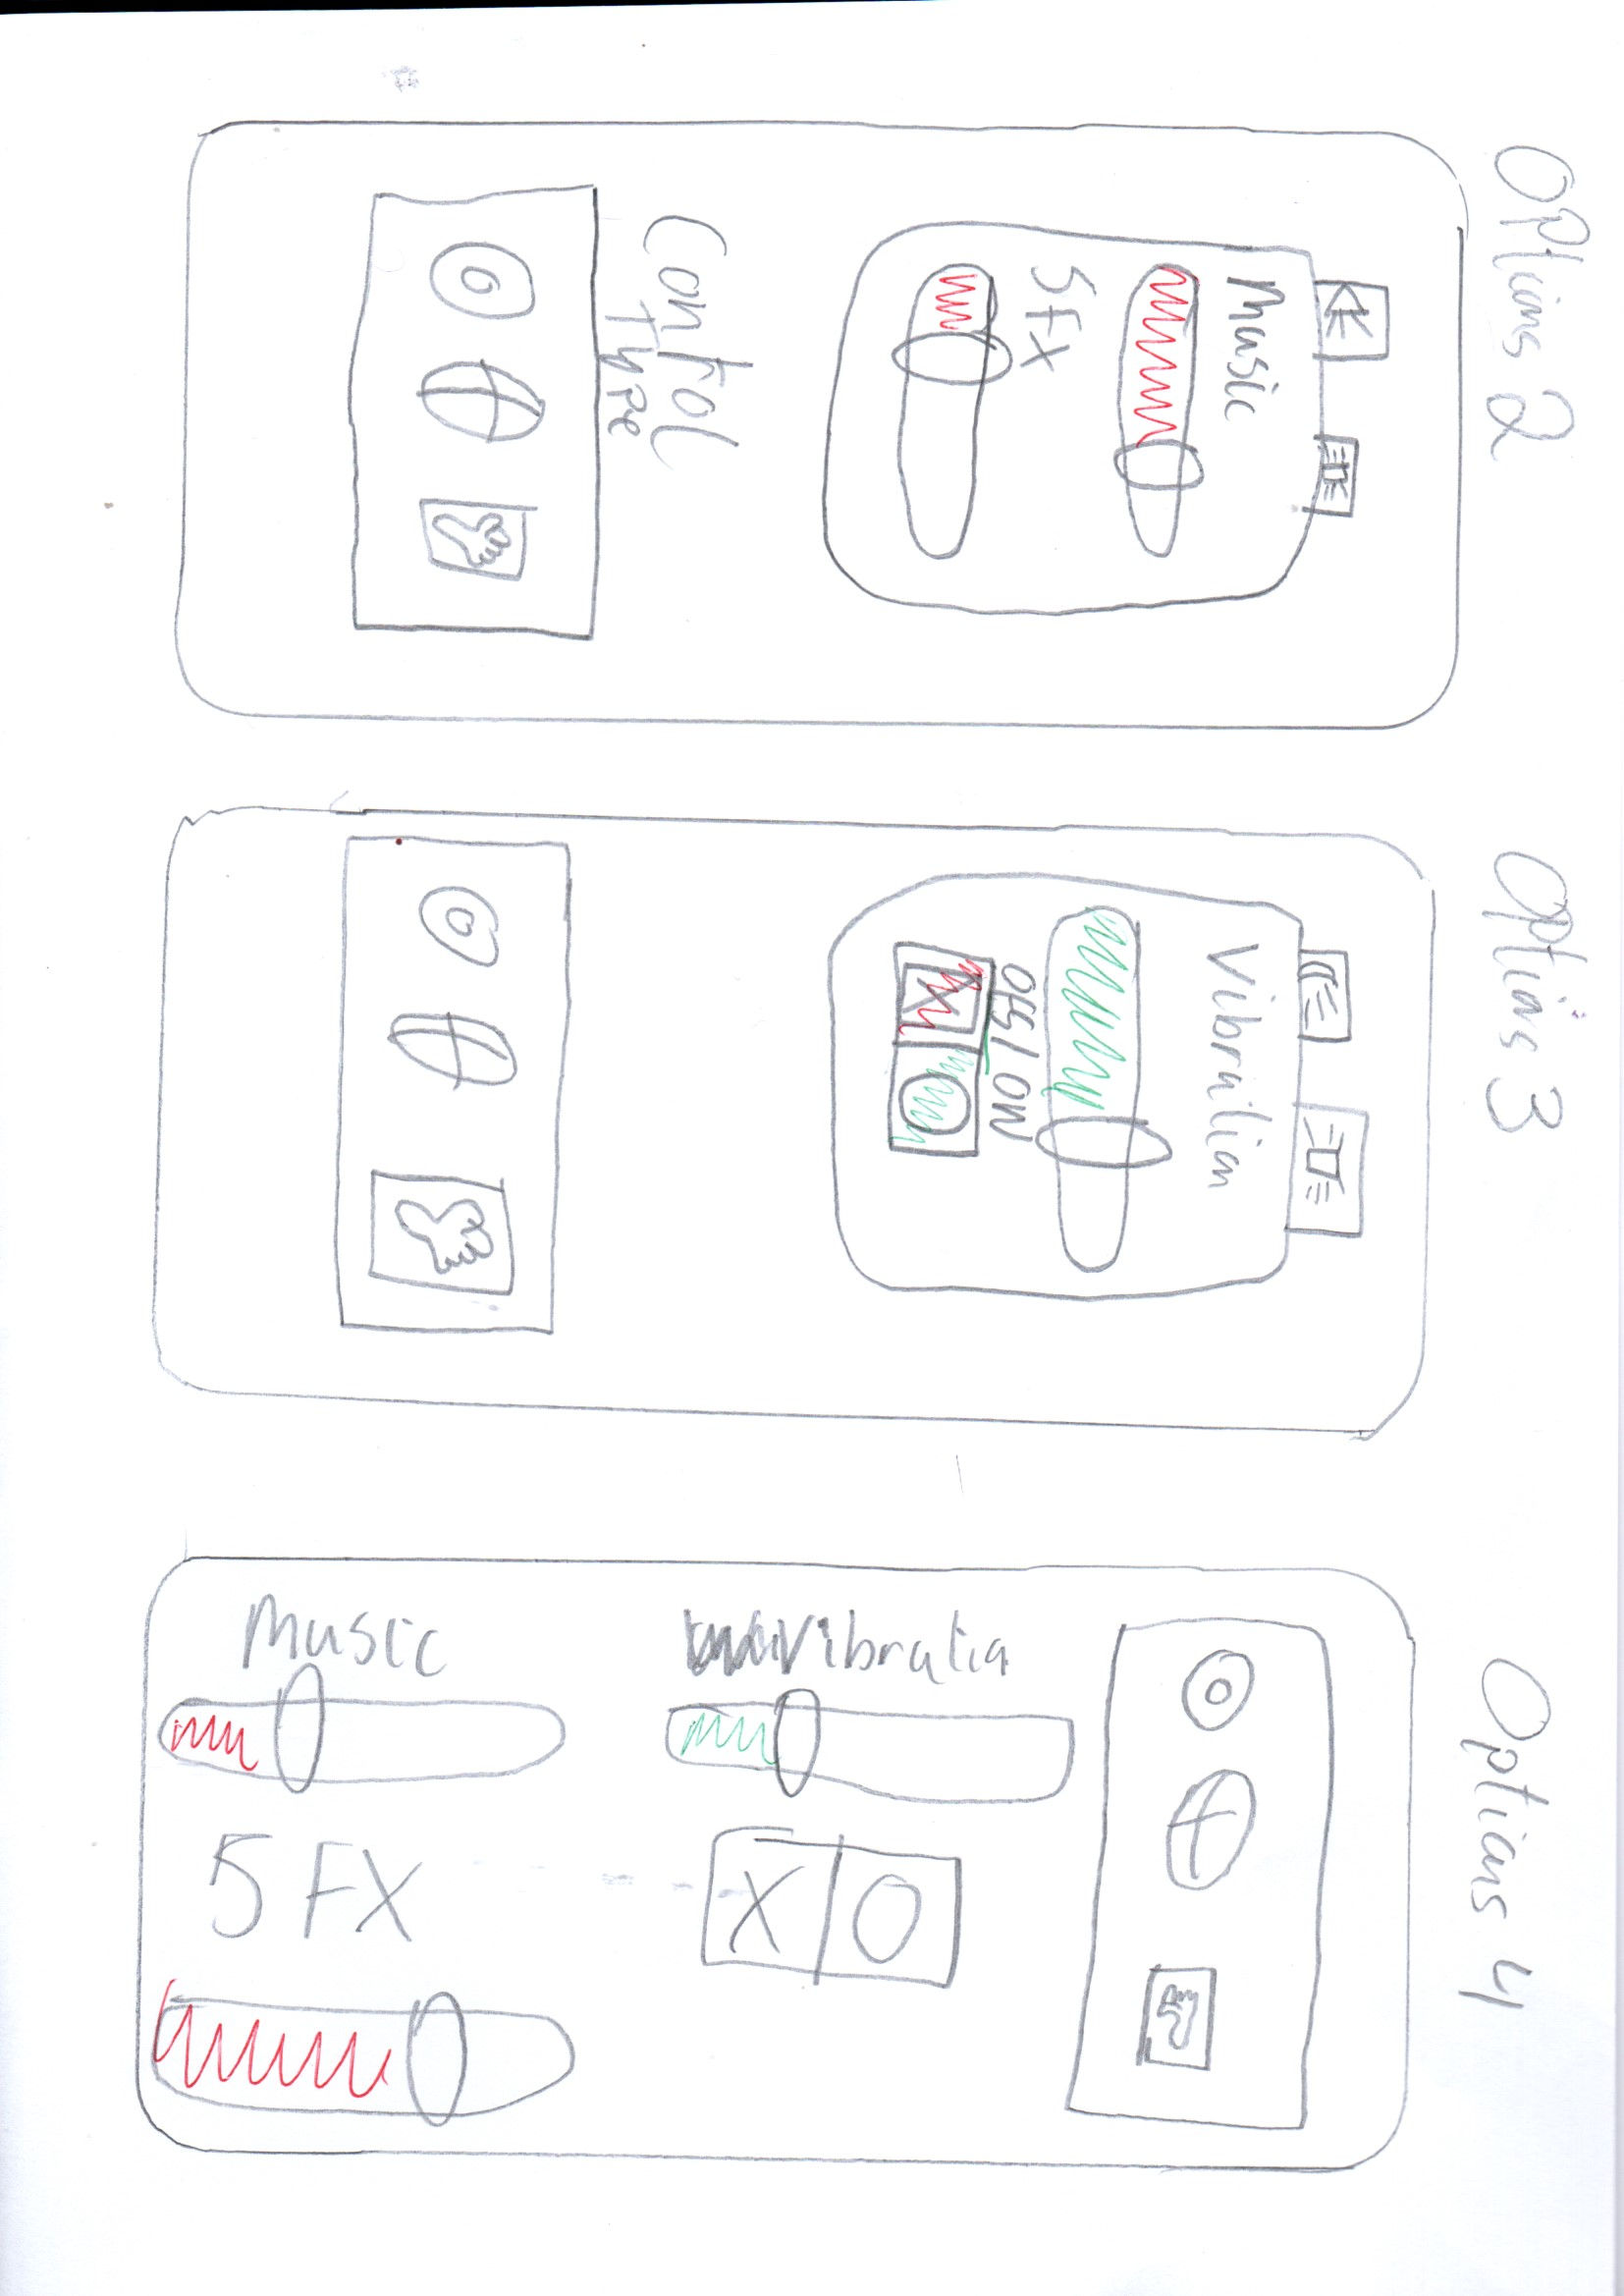 Options 2
Music
SFX
Control
Type
Options 3
Vibration
Off / ON
X O
Options 4
Music
Vibratia
SFX
X O